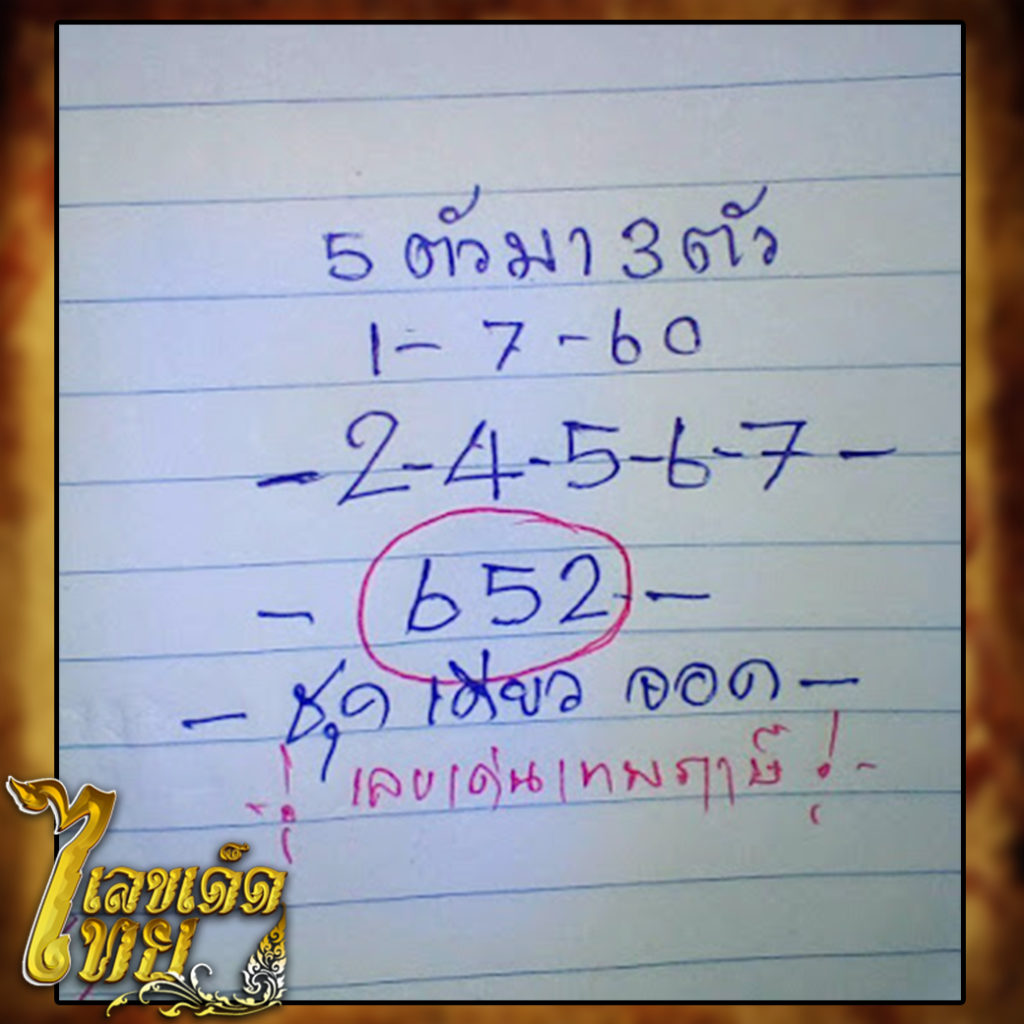 5 ตัวมา 3 ตัว
1 - 7 - 60
- 2 - 4 - 5 - 6 - 7 -
- 652 -
- ชุดเดียว จอด -
! เลขเด่นเทพฤาษี !
เลขเด็ด
ไทย